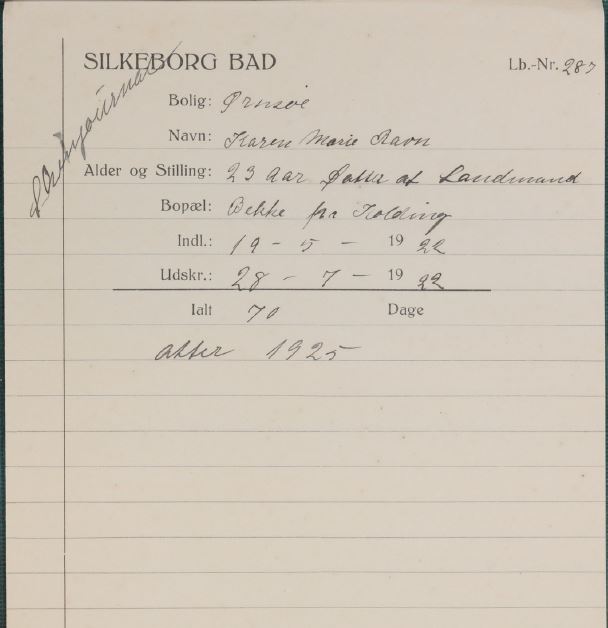 SILKEBORG BAD
Lb.-Nr. 287
Bolig: Ørnsöe
Navn: Karen Marie Ravn
Alder og Stilling: 23 Aar Datter af Landmand
Bopæl: Bekke pr Kolding
Indl.: 19 - 5 - 1922
Udskr.: 28 - 7 - 1922
Ialt 70 Dage
atter 1925